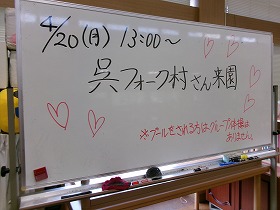 4/20(月) 13:00〜
呉フォーク村さん来園
※プールをされる方はグループ体操は
ありません。